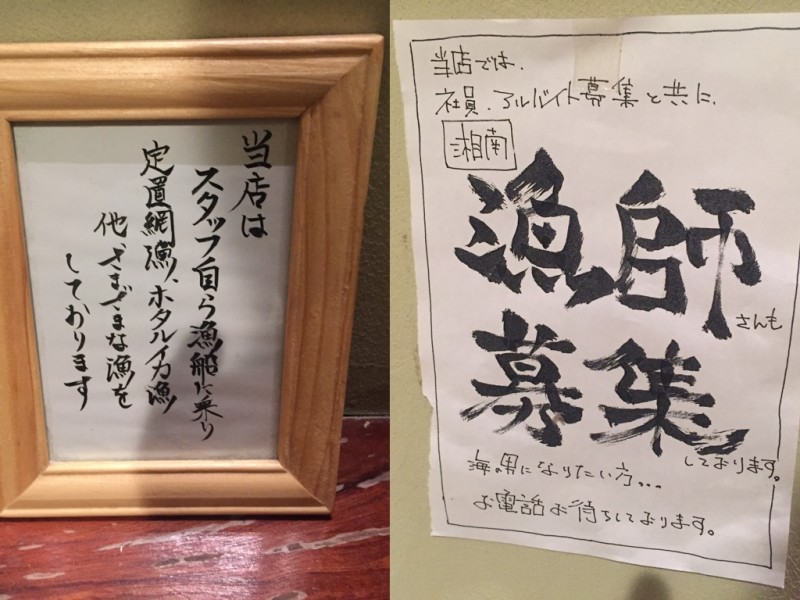 当店は
スタッフ自ら漁船に乗り
定置網漁、ホタルイカ漁
他、さまざまな漁を
しております
当店では、
社員、アルバイト募集と共に、
湘南
漁師
さんも
募集
しております。
海の男になりたい方...
お電話お待ちしております。